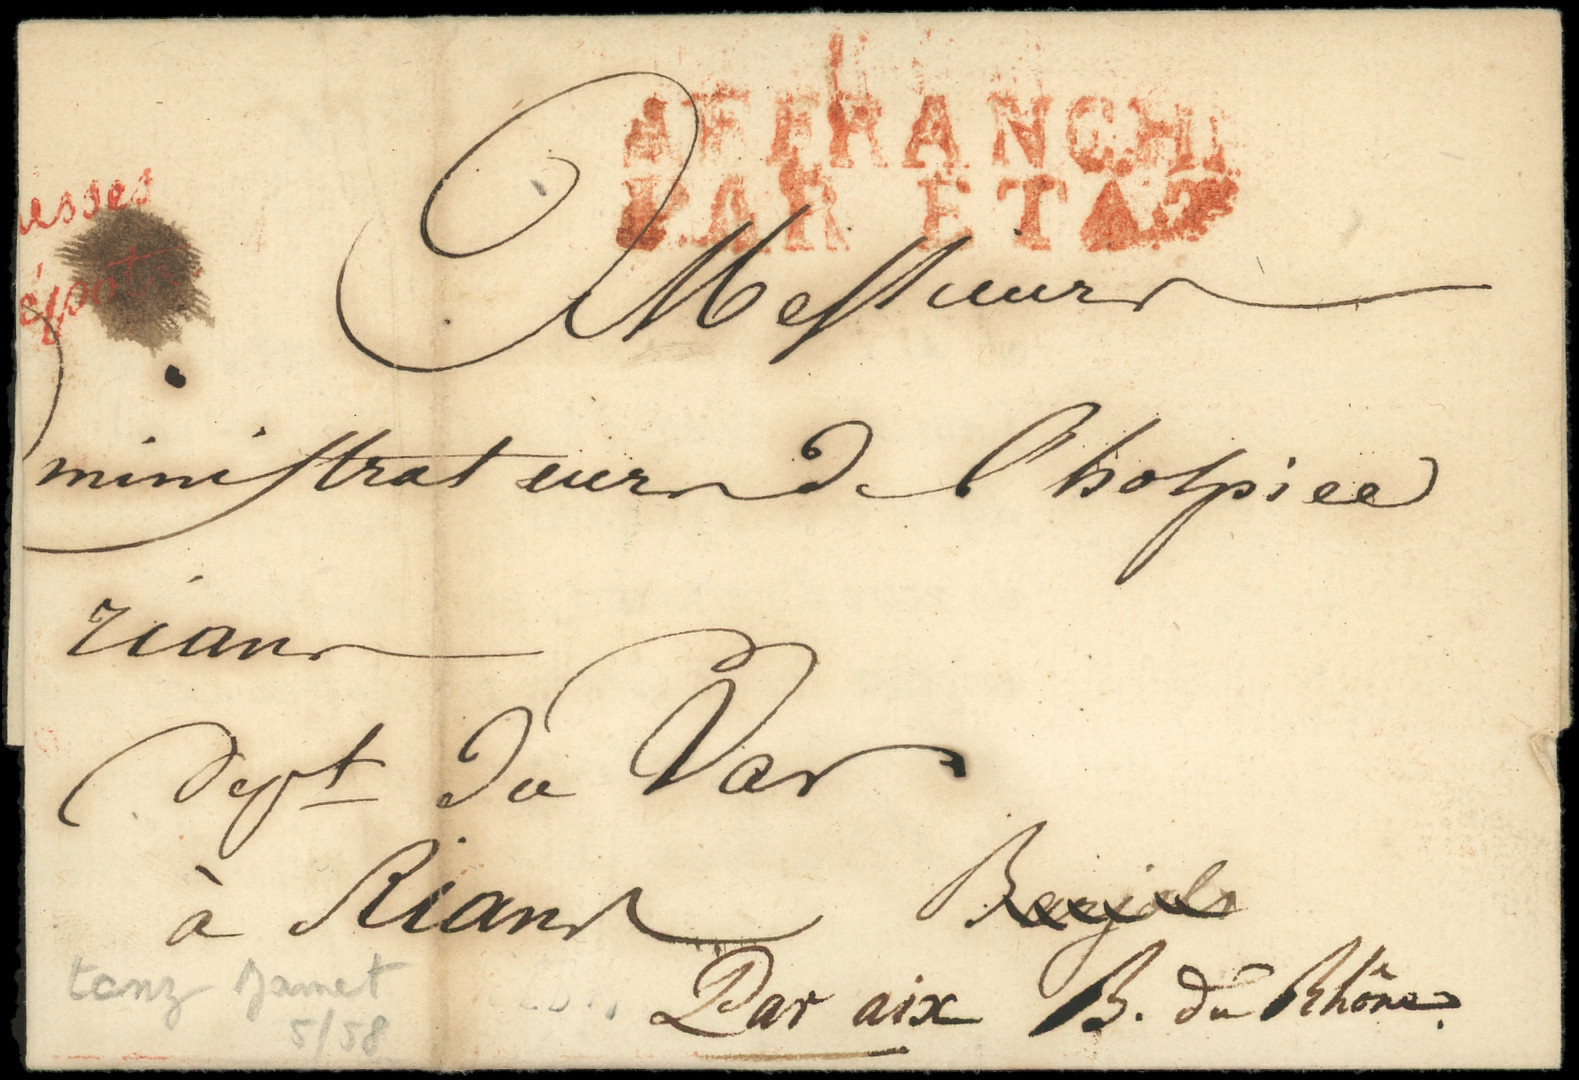 AFFRANCHI
PAR ETAT
esses
Messieurs
ministrateurs de l'hospice
rians
dept du Var
à Rians
Barjols
Par aix B. du Rhône.
tanz Jamet
5/58